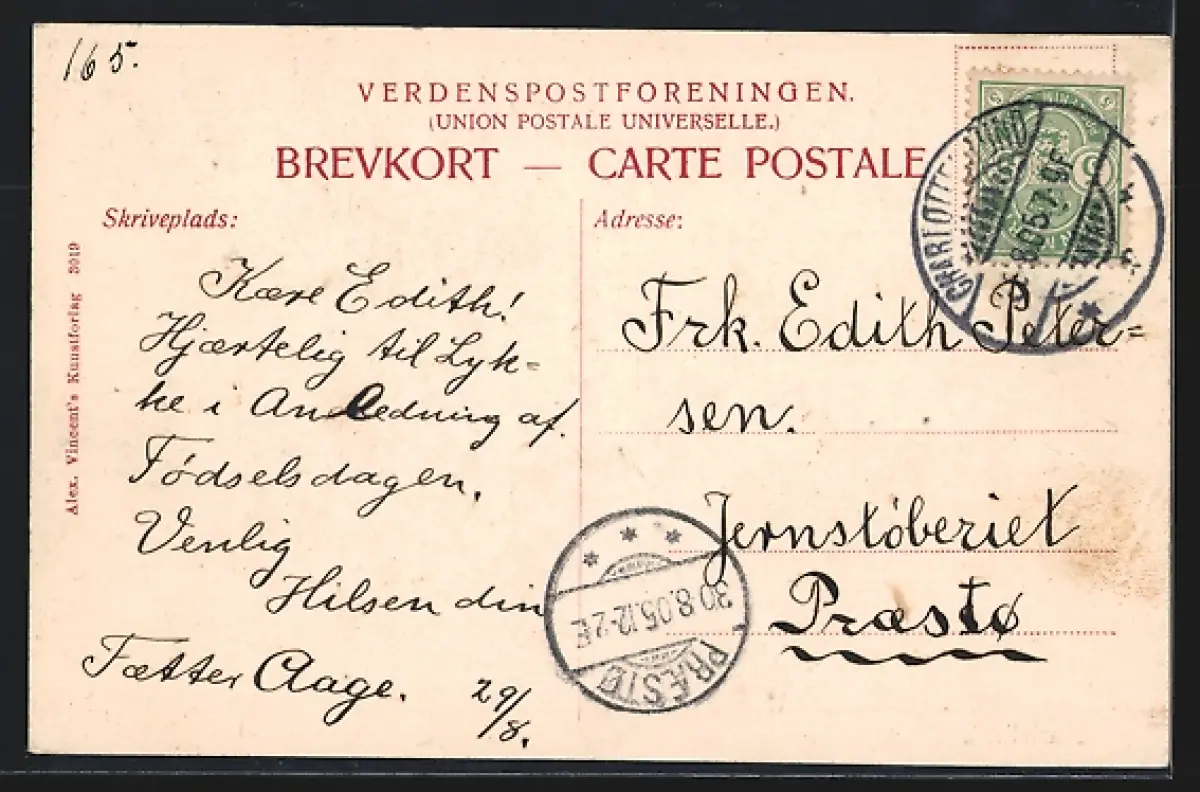 165.
VERDENSPOSTFORENINGEN.
(UNION POSTALE UNIVERSELLE.)
BREVKORT — CARTE POSTALE
Skriveplads:
Adresse:
Alex. Vincent's Kunstforlag 3019
Kære Edith!
Hjærtelig til Lyk-
ke i Anledning af
Fødselsdagen.
Venlig
Hilsen din
Fætter Aage.
29/8.
Frk. Edith Peter=
sen.
Jernstøberiet
Præstø
CHARLOTTENLUND
PRÆSTØ
30.8.05.12-2E